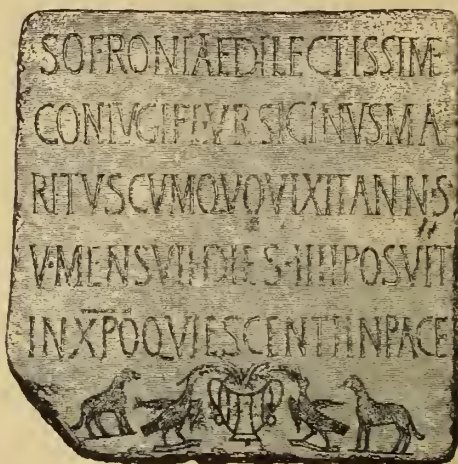 SOFRONIAEDILECTISSIMÆ
CONIVGIFLVRSICINVSMA
RITVSCVMQVOVIXITANN·S
V·MENSVIIDIES·IIIIPOSVIT
INX̅P̅OQVIESCENTIINPACE